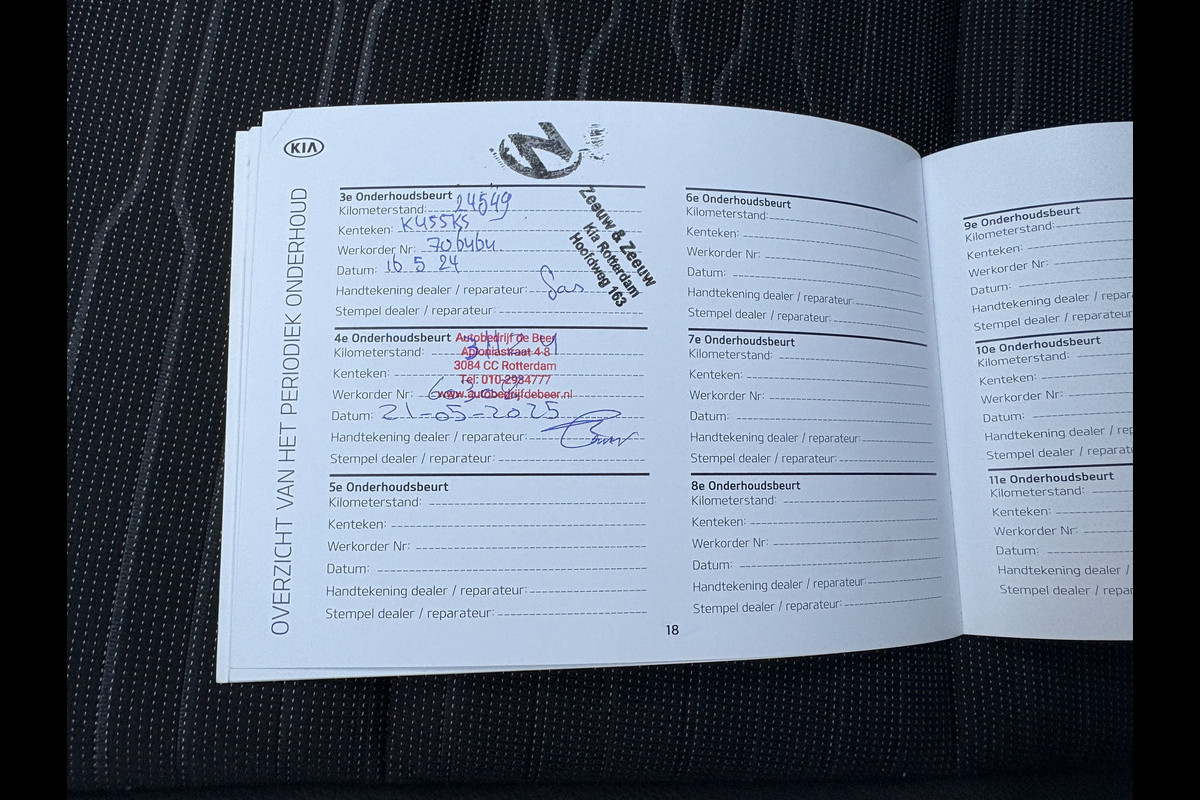 KIA
OVERZICHT VAN HET PERIODIEK ONDERHOUD
3e Onderhoudsbeurt
Kilometerstand: 24549
Kenteken: K455KS
Werkorder Nr:
Datum: 16 5 24
Handtekening dealer / reparateur:
Stempel dealer / reparateur:
Zeeuw & Zeeuw
Kia Rotterdam
Hoofdweg 163
4e Onderhoudsbeurt
Kilometerstand:
Kenteken:
Werkorder Nr:
Datum: 21-05-2025
Handtekening dealer / reparateur:
Stempel dealer / reparateur:
Autobedrijf de Beer
Aploniastraat 4-8
3084 CC Rotterdam
Tel: 010-2934777
www.autobedrijfdebeer.nl
5e Onderhoudsbeurt
Kilometerstand:
Kenteken:
Werkorder Nr:
Datum:
Handtekening dealer / reparateur:
Stempel dealer / reparateur:
6e Onderhoudsbeurt
Kilometerstand:
Kenteken:
Werkorder Nr:
Datum:
Handtekening dealer / reparateur:
Stempel dealer / reparateur:
7e Onderhoudsbeurt
Kilometerstand:
Kenteken:
Werkorder Nr:
Datum:
Handtekening dealer / reparateur:
Stempel dealer / reparateur:
8e Onderhoudsbeurt
Kilometerstand:
Kenteken:
Werkorder Nr:
Datum:
Handtekening dealer / reparateur:
Stempel dealer / reparateur:
18
9e Onderhoudsbeurt
Kilometerstand:
Kenteken:
Werkorder Nr:
Datum:
Handtekening dealer / repar
Stempel dealer / reparateur
10e Onderhoudsbeurt
Kilometerstand:
Kenteken:
Werkorder Nr:
Datum:
Handtekening dealer / rep
Stempel dealer / reparat
11e Onderhoudsbeurt
Kilometerstand:
Kenteken:
Werkorder Nr:
Datum:
Handtekening dealer /
Stempel dealer / repar